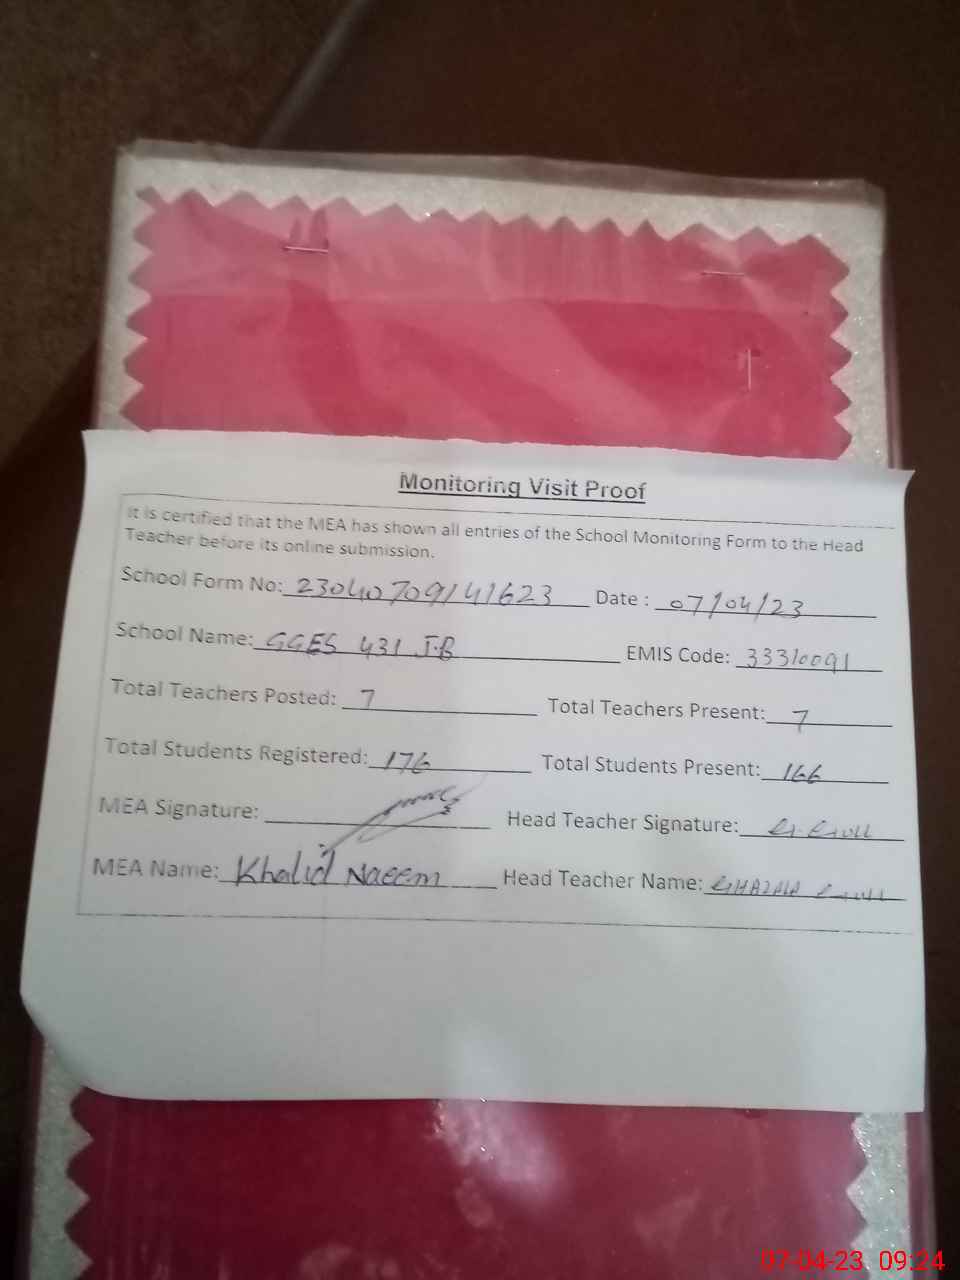 Monitoring Visit Proof
It is certified that the MEA has shown all entries of the School Monitoring Form to the Head
Teacher before its online submission.
School Form No: 23040709141623 Date : 07/04/23
School Name: GGES 431 J.B EMIS Code: 33310091
Total Teachers Posted: 7 Total Teachers Present: 7
Total Students Registered: 176 Total Students Present: 166
MEA Signature: Head Teacher Signature: G.Gull
MEA Name: Khalid Naeem Head Teacher Name: GHAZALA Gull
07-04-23 09:24